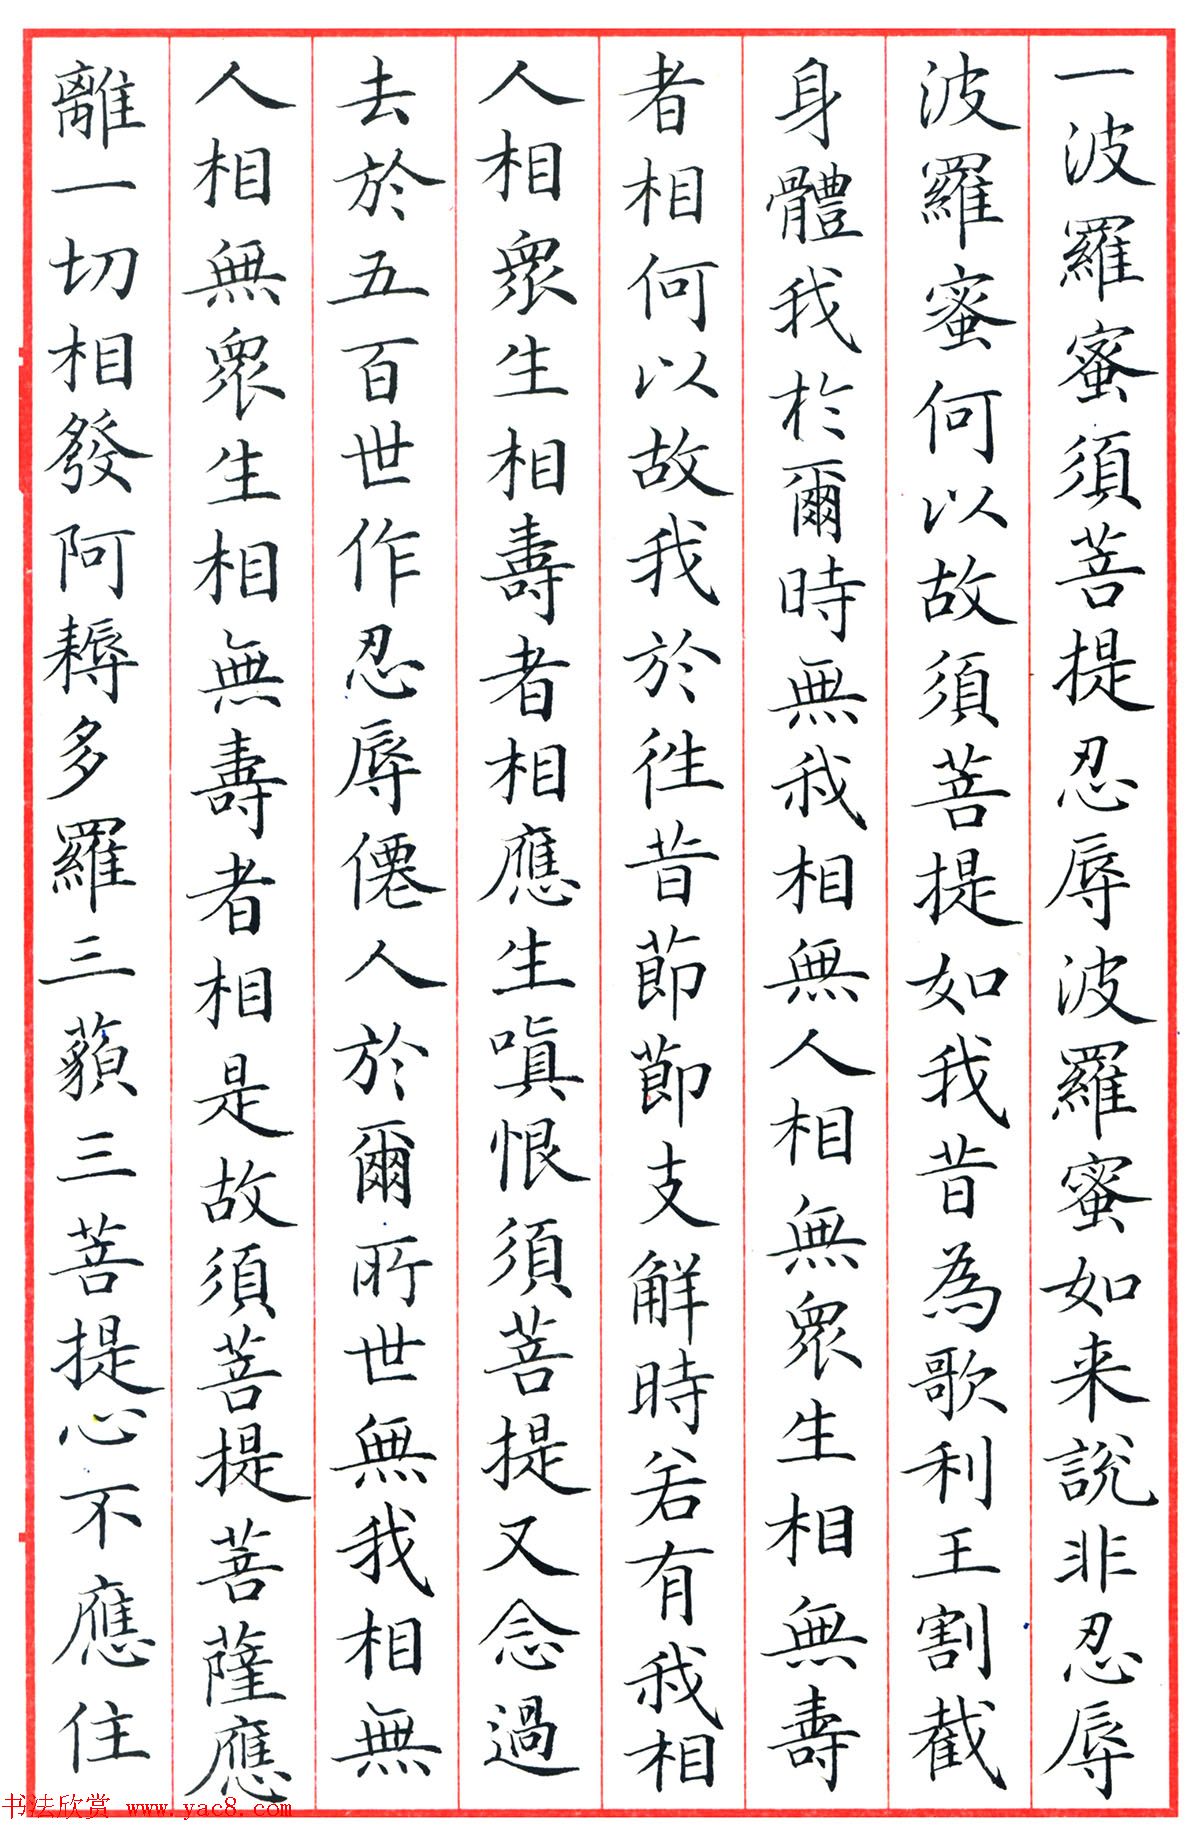 一波羅蜜須菩提忍辱波羅蜜如来說非忍辱
波羅蜜何以故須菩提如我昔為歌利王割截
身體我於爾時無我相無人相無眾生相無壽
者相何以故我於往昔節節支解時若有我相
人相眾生相壽者相應生嗔恨須菩提又念過
去於五百世作忍辱僊人於爾所世無我相無
人相無眾生相無壽者相是故須菩提菩薩應
離一切相發阿耨多羅三藐三菩提心不應住
书法欣赏 www.yac8.com